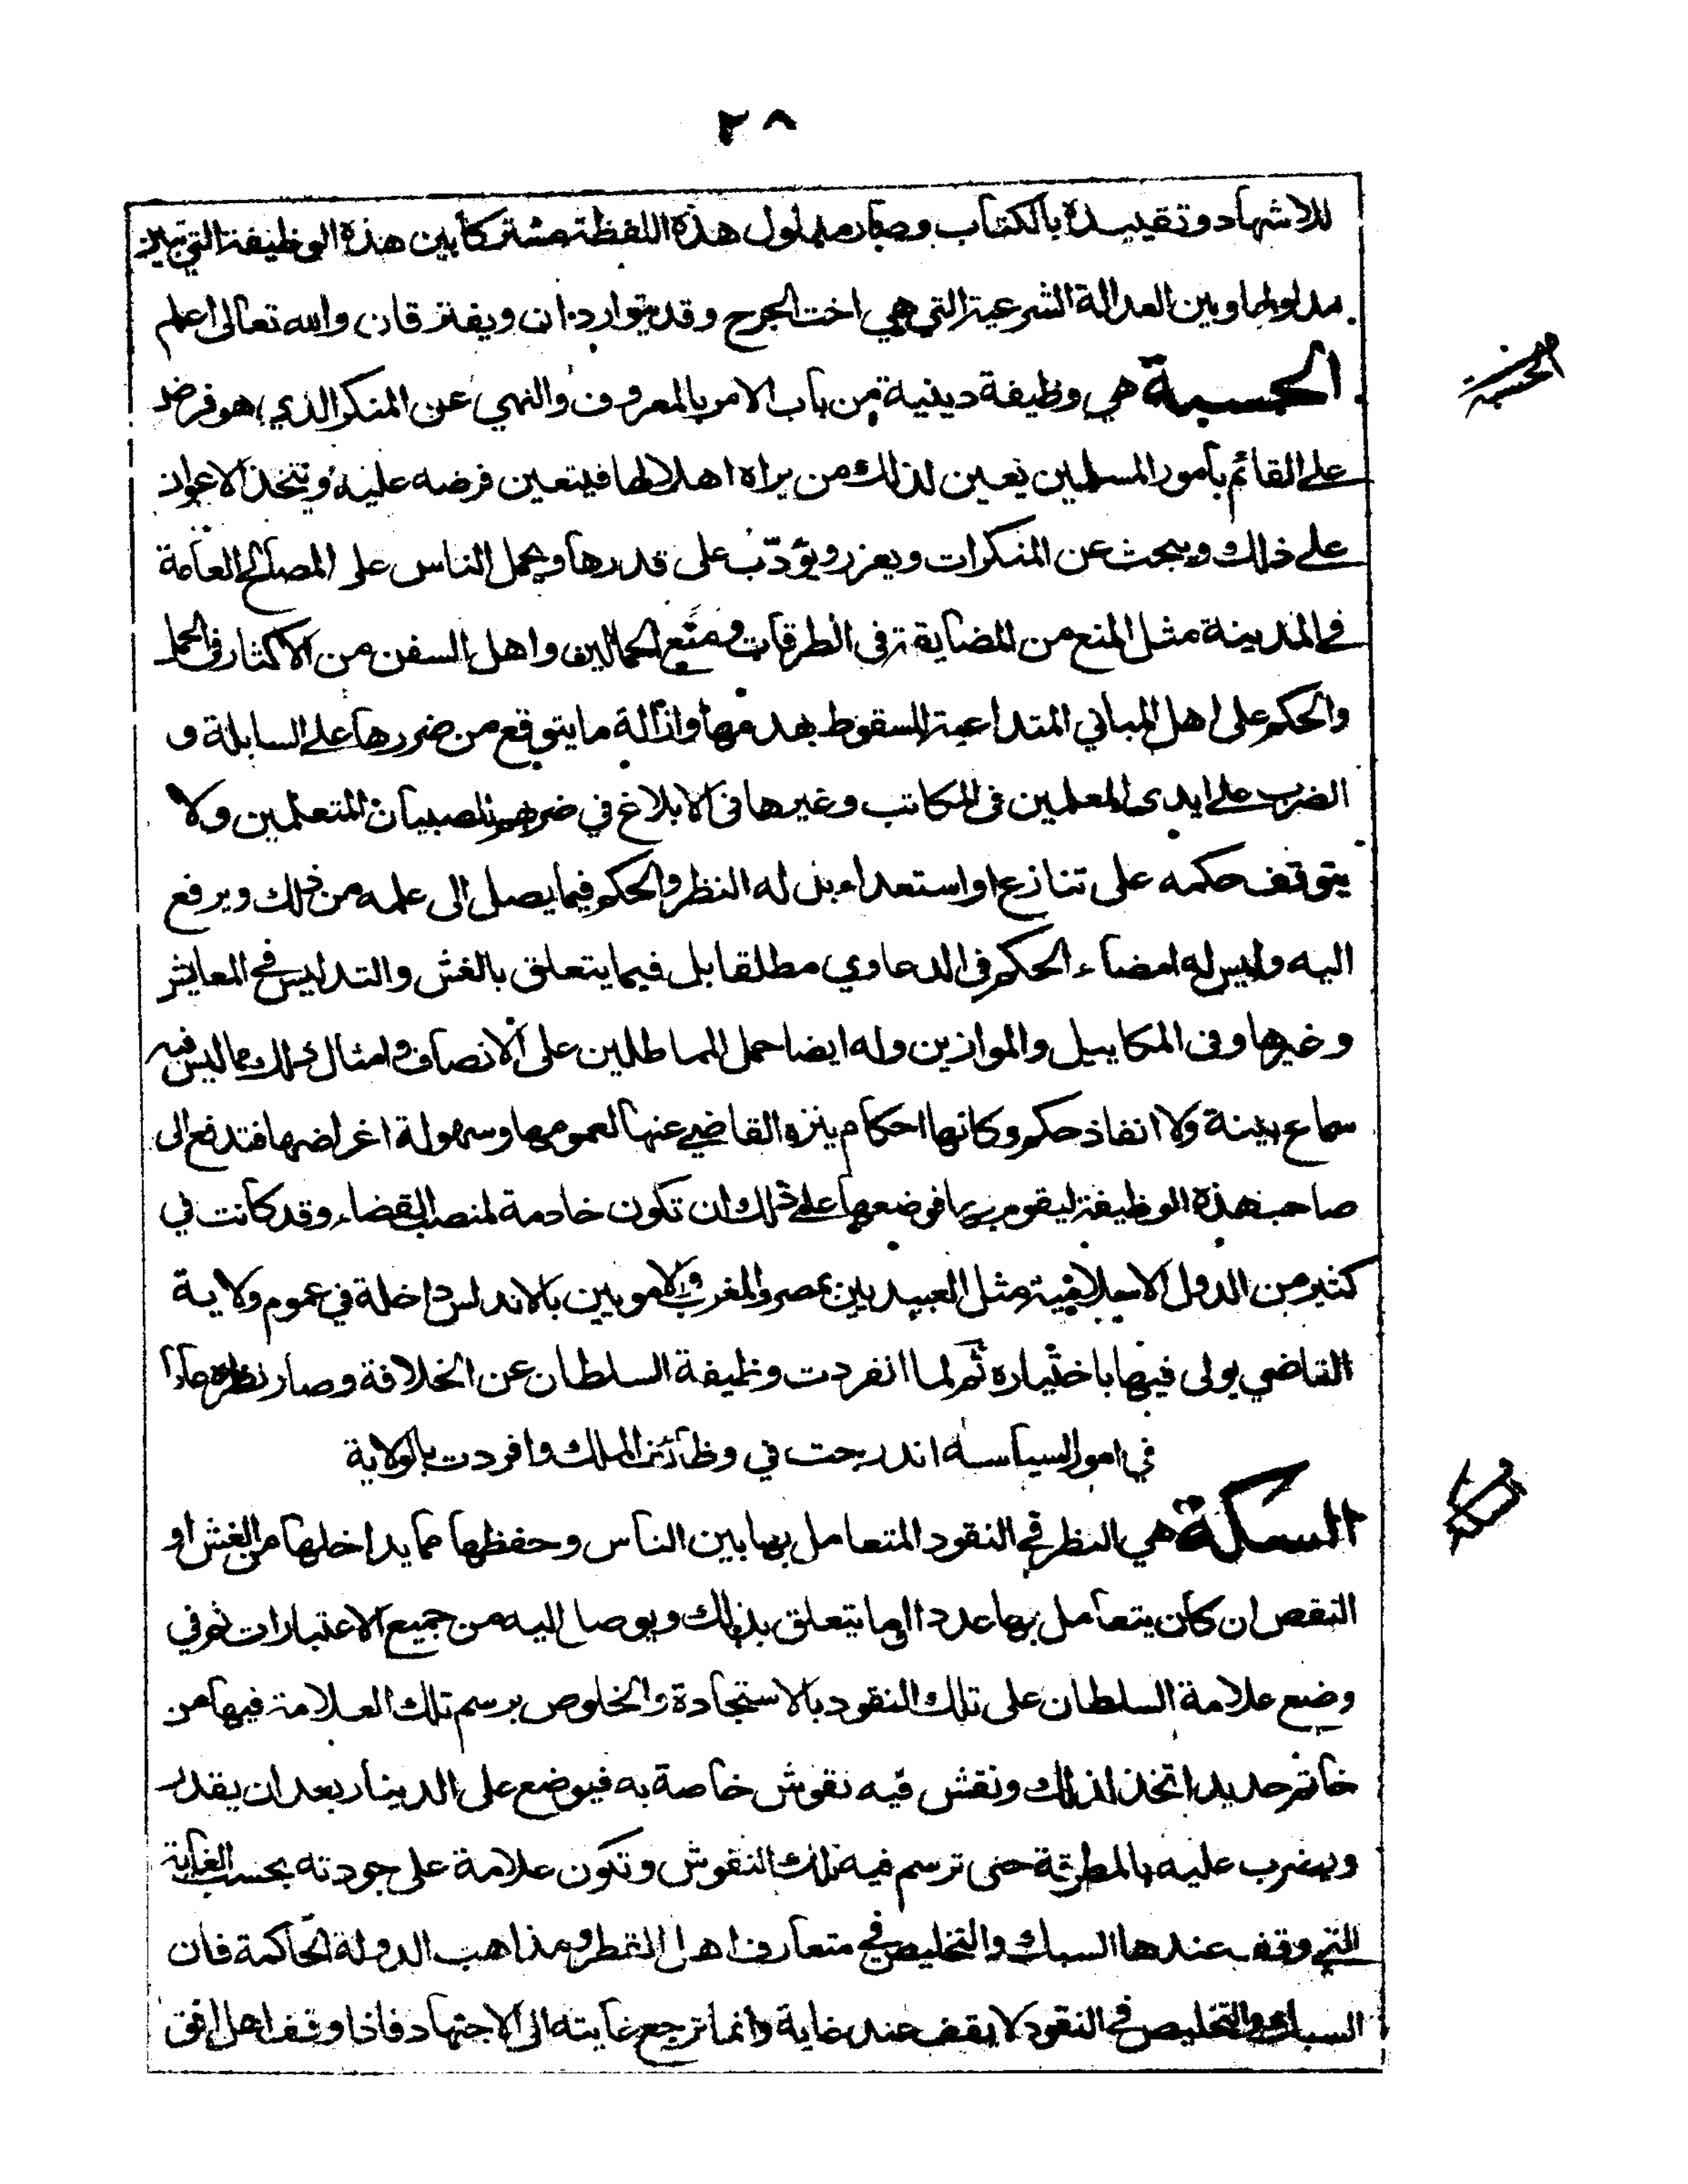 ٢٨
للاشهاد وتقييده بالكتاب وصار مدلول هذه اللفظة مشتركا بين هذه الوظيفة التي تبين
مدلولها وبين العدالة الشرعية التي هي اخت الجرح وقد يتواردان ويفترقان والله تعالى اعلم
الحسبة هي وظيفة دينية من باب الامر بالمعروف والنهي عن المنكر الذي هو فرض
الحسبة
على القائم بأمور المسلمين يعين لذلك من يراه اهلا لها فيتعين فرضه عليه ويتخذ الاعوان
على ذلك ويبحث عن المنكرات ويعزر ويؤدّب على قدرها ويحمل الناس على المصالح العامة
في المدينة مثل المنع من المضايقة في الطرقات ومنع الحمالين واهل السفن من الاكثار في الحمل
والحكم على اهل المباني المتداعية للسقوط بهدمها وازالة ما يتوقع من ضررها على السابلة و
الضرب على ايدى المعلمين فى المكاتب وغيرها فى الابلاغ في ضربهم للصبيان المتعلمين ولا
يتوقف حكمه على تنازع او استعداء بل له النظر والحكم فيما يصل الى علمه من ذلك ويرفع
اليه وليس له امضاء الحكم في الدعاوي مطلقا بل فيما يتعلق بالغش والتدليس في المعايش
وغيرها وفى المكاييل والموازين وله ايضا حمل المماطلين على الانصاف وامثال ذلك مما ليس فيه
سماع بينة ولا انفاذ حكم وكانها احكام ينزه القاضي عنها لعمومها وسهولة اغراضها فتدفع الى
صاحب هذه الوظيفة ليقوم بها فوضعها على ذلك ان تكون خادمة لمنصب القضاء وقد كانت في
كثير من الدول الاسلامية مثل العبيديين بمصر والمغرب والامويين بالاندلس داخلة في عموم ولاية
القاضي يولى فيها باختياره ثم لما انفردت وظيفة السلطان عن الخلافة وصار نظره عاما
في امور السياسة اندرجت في وظائف الملك وافردت بالولاية
السكة هي النظر في النقود المتعامل بها بين الناس وحفظها مما يداخلها من الغش او
السكة
النقص ان كان يتعامل بها عددا او ما يتعلق بذلك ويوصل اليه من جميع الاعتبارات ثم في
وضع علامة السلطان على تلك النقود بالاستجادة والخلوص برسم تلك العلامة فيها من
خاتم حديد اتخذ لذلك ونقش فيه نقوش خاصة به فيوضع على الدينار بعد ان يقدر
ويضرب عليه بالمطرقة حتى ترسم فيه تلك النقوش وتكون علامة على جودته بحسب الغاية
التي وقف عندها السبك والتخليص في متعارف اهل القطر ومذاهب الدولة الحاكمة فان
السبك والتخليص في النقود لا يقف عند غاية وانما ترجع غايته الى الاجتهاد فاذا وقف اهل افق